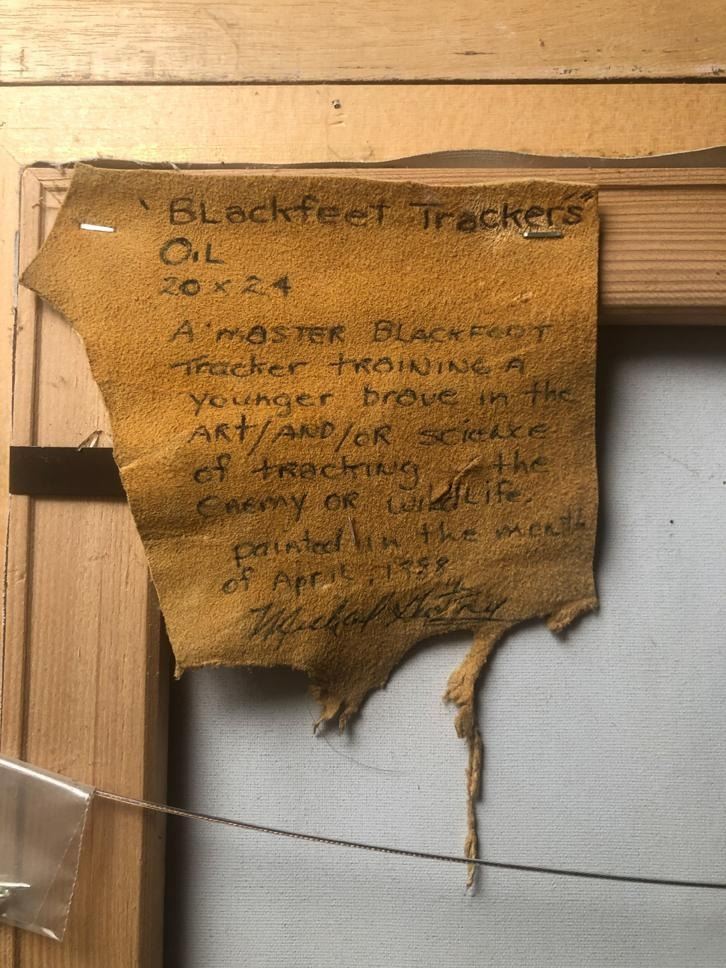 "Blackfeet Trackers"
OIL
20 x 24
A MASTER BLACKFOOT
Tracker TRAINING A
younger brave in the
ART/AND/OR SCIENCE
of TRACKING the
ENEMY OR WILDLIFE.
painted in the month
of April,
Michael